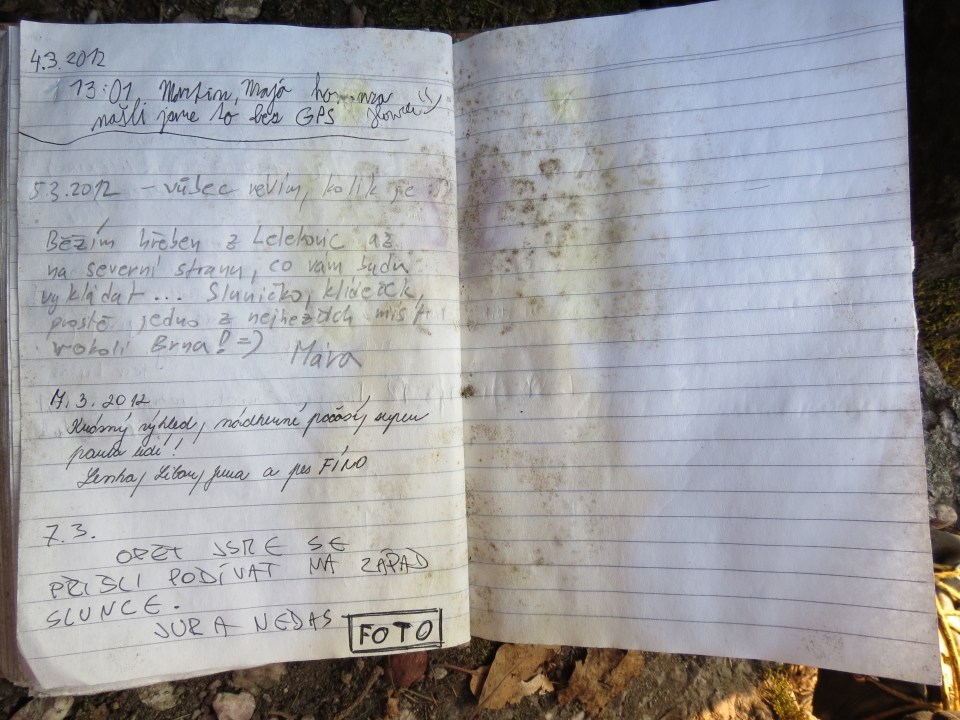 4.3.2012
13:01 Martin, Majá
našli jsme to bez GPS
5.3.2012 - vůbec nevím, kolik je :)
Běžím hřeben z Lelekovic až
na severní stranu, co vám budu
vykládat... Sluníčko, klídeček,
prostě jedno z nejhezčích míst
v okolí Brna! =) Mára
7.3.2012
Krásný výhled, nádherné počasí,
lidí!
Lenka, Libor, Jura a pes FÍNO
7.3.
OPĚT JSME SE
PŘIŠLI PODÍVAT NA ZÁPAD
SLUNCE.
JURA NEDAS FOTO